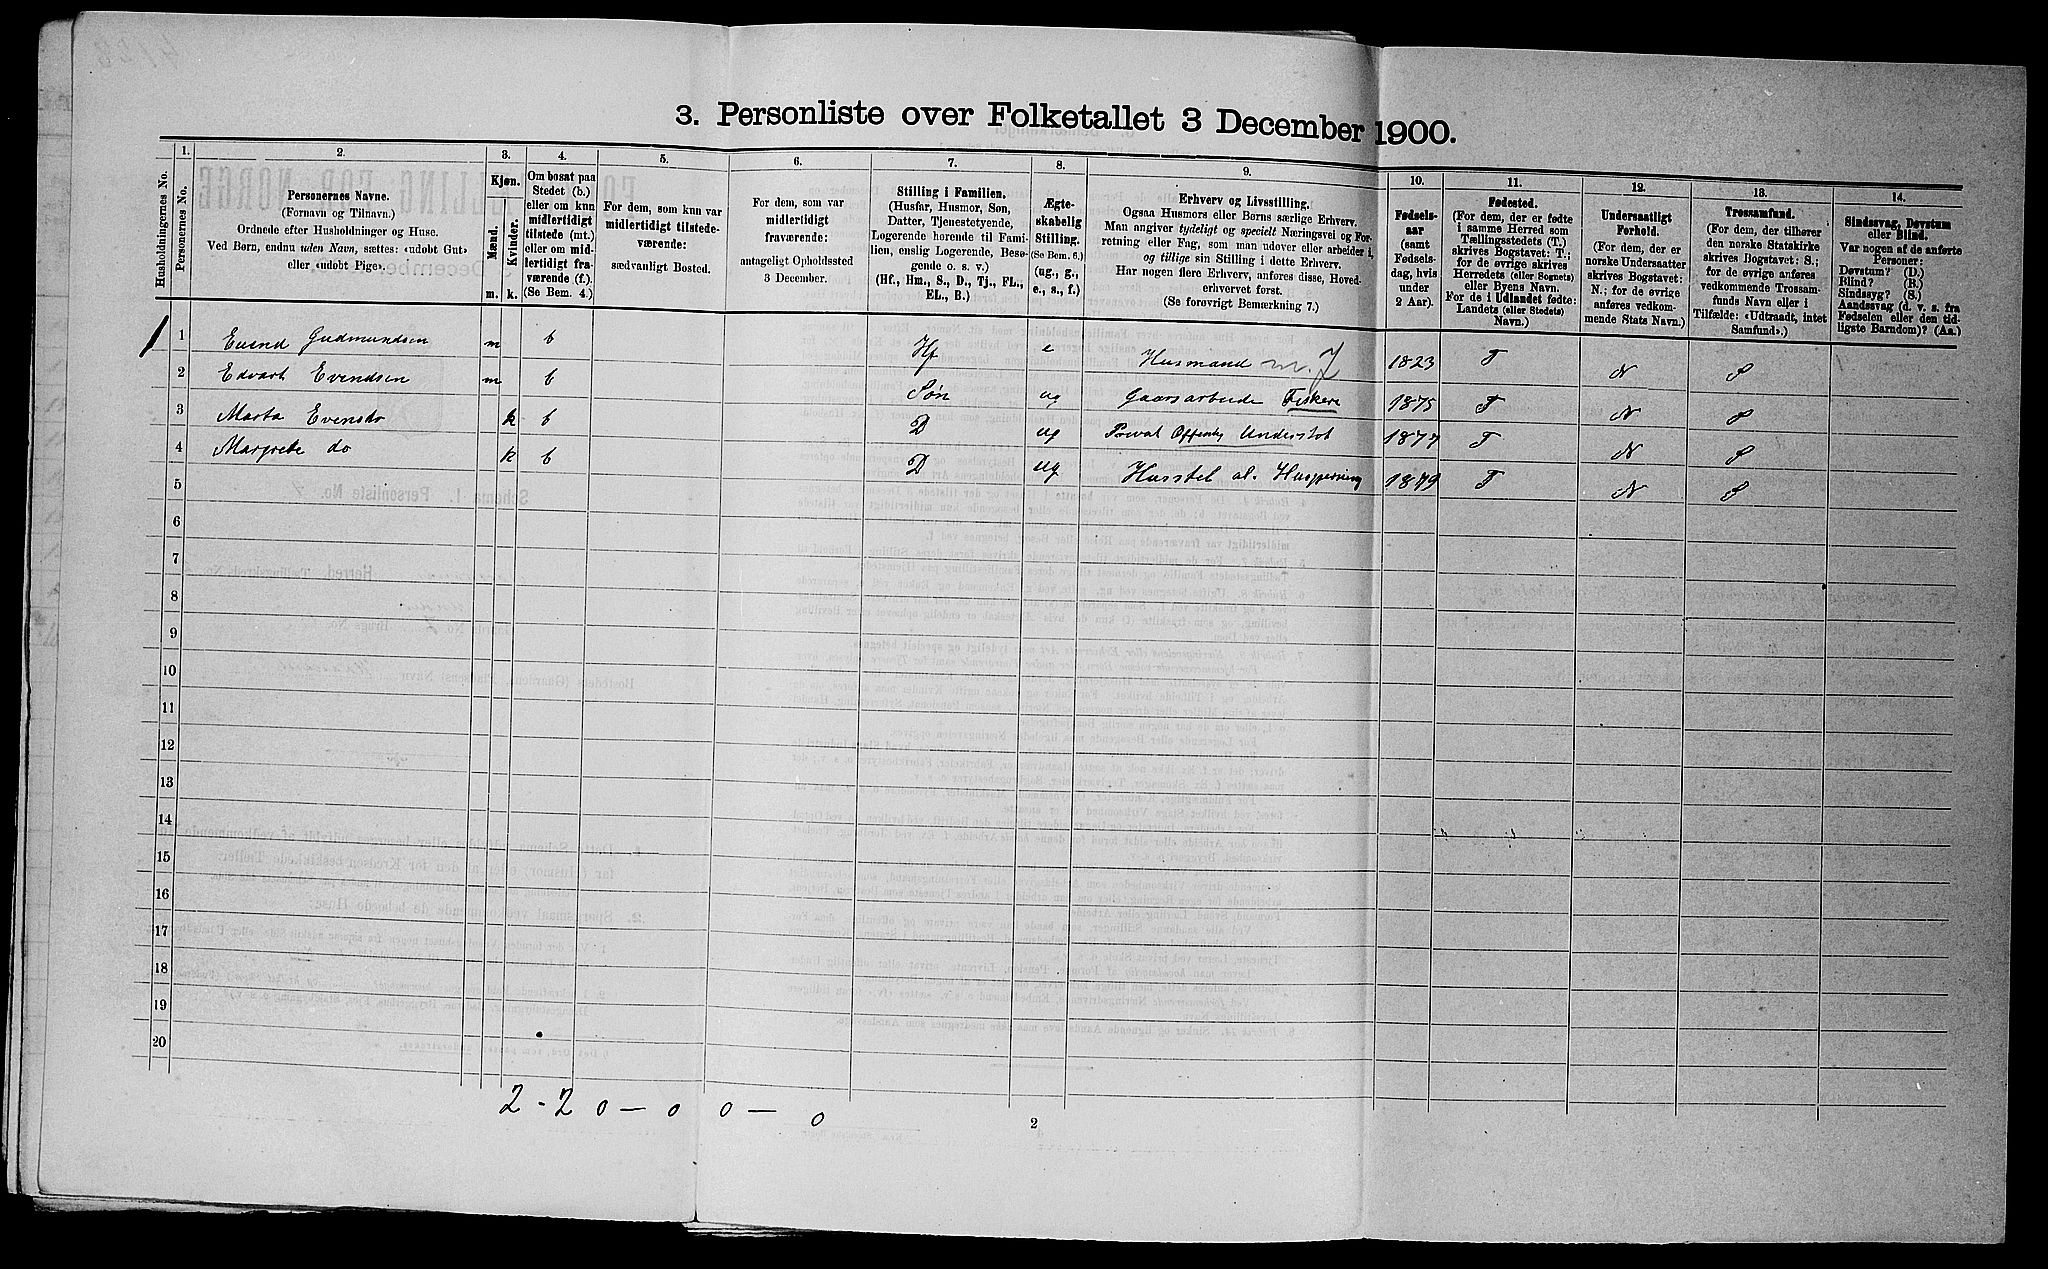 3. Personliste over Folketallet 3 December 1900.
Husholdningernes No.
1.
Personernes No.
2.
Personernes Navne.
(Fornavn og Tilnavn.)
Ordnede efter Husholdninger og Huse.
Ved Børn, endnu uden Navn, sættes: «udøbt Gut»
eller «udøbt Pige».
3.
Kjøn.
Mænd.
m.
Kvinder.
k.
4.
Om bosat paa
Stedet (b.)
eller om kun
midlertidigt
tilstede (mt.)
eller om mid-
lertidigt fra-
værende (f.).
(Se Bem. 4.)
5.
For dem, som kun var
midlertidigt tilstede-
værende:
sædvanligt Bosted.
6.
For dem, som var
midlertidigt
fraværende:
antageligt Opholdssted
3 December.
7.
Stilling i Familien.
(Husfar, Husmor, Søn,
Datter, Tjenestetyende,
Logerende hørende til Fami-
lien, enslig Logerende, Besø-
gende o. s. v.)
(Hf., Hm., S., D., Tj., FL.,
EL., B.)
8.
Ægte-
skabelig
Stilling.
(Se Bem. 6.)
(ug., g.,
e., s., f.)
9.
Erhverv og Livsstilling.
Ogsaa Husmors eller Børns særlige Erhverv.
Man angiver tydeligt og specielt Næringsvei og For-
retning eller Fag, som man udøver eller arbeider i,
og tillige sin Stilling i dette Erhverv.
Har nogen flere Erhverv, anføres disse, Hoved-
erhvervet først.
(Se forøvrigt Bemærkning 7.)
10.
Fødsels-
aar
(samt
Fødsels-
dag, hvis
under
2 Aar).
11.
Fødested.
(For dem, der er fødte
i samme Herred som
Tællingsstedets (T.)
skrives Bogstavet: T.;
for de øvrige skrives
Herredets (eller Sognets)
eller Byens Navn.
For de i Udlandet fødte:
Landets (eller Stedets)
Navn.)
12.
Undersaatligt
Forhold.
(For dem, der er
norske Undersaatter
skrives Bogstavet:
N.; for de øvrige
anføres vedkom-
mende Stats Navn.)
13.
Trossamfund.
(For dem, der tilhører
den norske Statskirke
skrives Bogstavet: S.;
for de øvrige anføres
vedkommende Trossam-
funds Navn eller i
Tilfælde: «Udtraadt, intet
Samfund».)
14.
Sindssvag, Døvstum
eller Blind.
Var nogen af de anførte
Personer:
Døvstum? (D.)
Blind? (B.)
Sindssyg? (S.)
Aandssvag (d. v. s. fra
Fødselen eller den tid-
ligste Barndom)? (Aa.)
1 Evend Gudmundsen m b Hf e Husmand m. J 1823 T N S
2 Edvart Evendsen m b Søn ug Gaarsarbeide Fisker 1875 T N S
3 Marta Evensdo k b D ug Privat Offentlig Understøt 1877 T N S
4 Margrete do k b D ug Husstel al. Husgjerning 1879 T N S
5
6
7
8
9
10
11
12
13
14
15
16
17
18
19
20
2 - 2 0 — 0 0 — 0
2